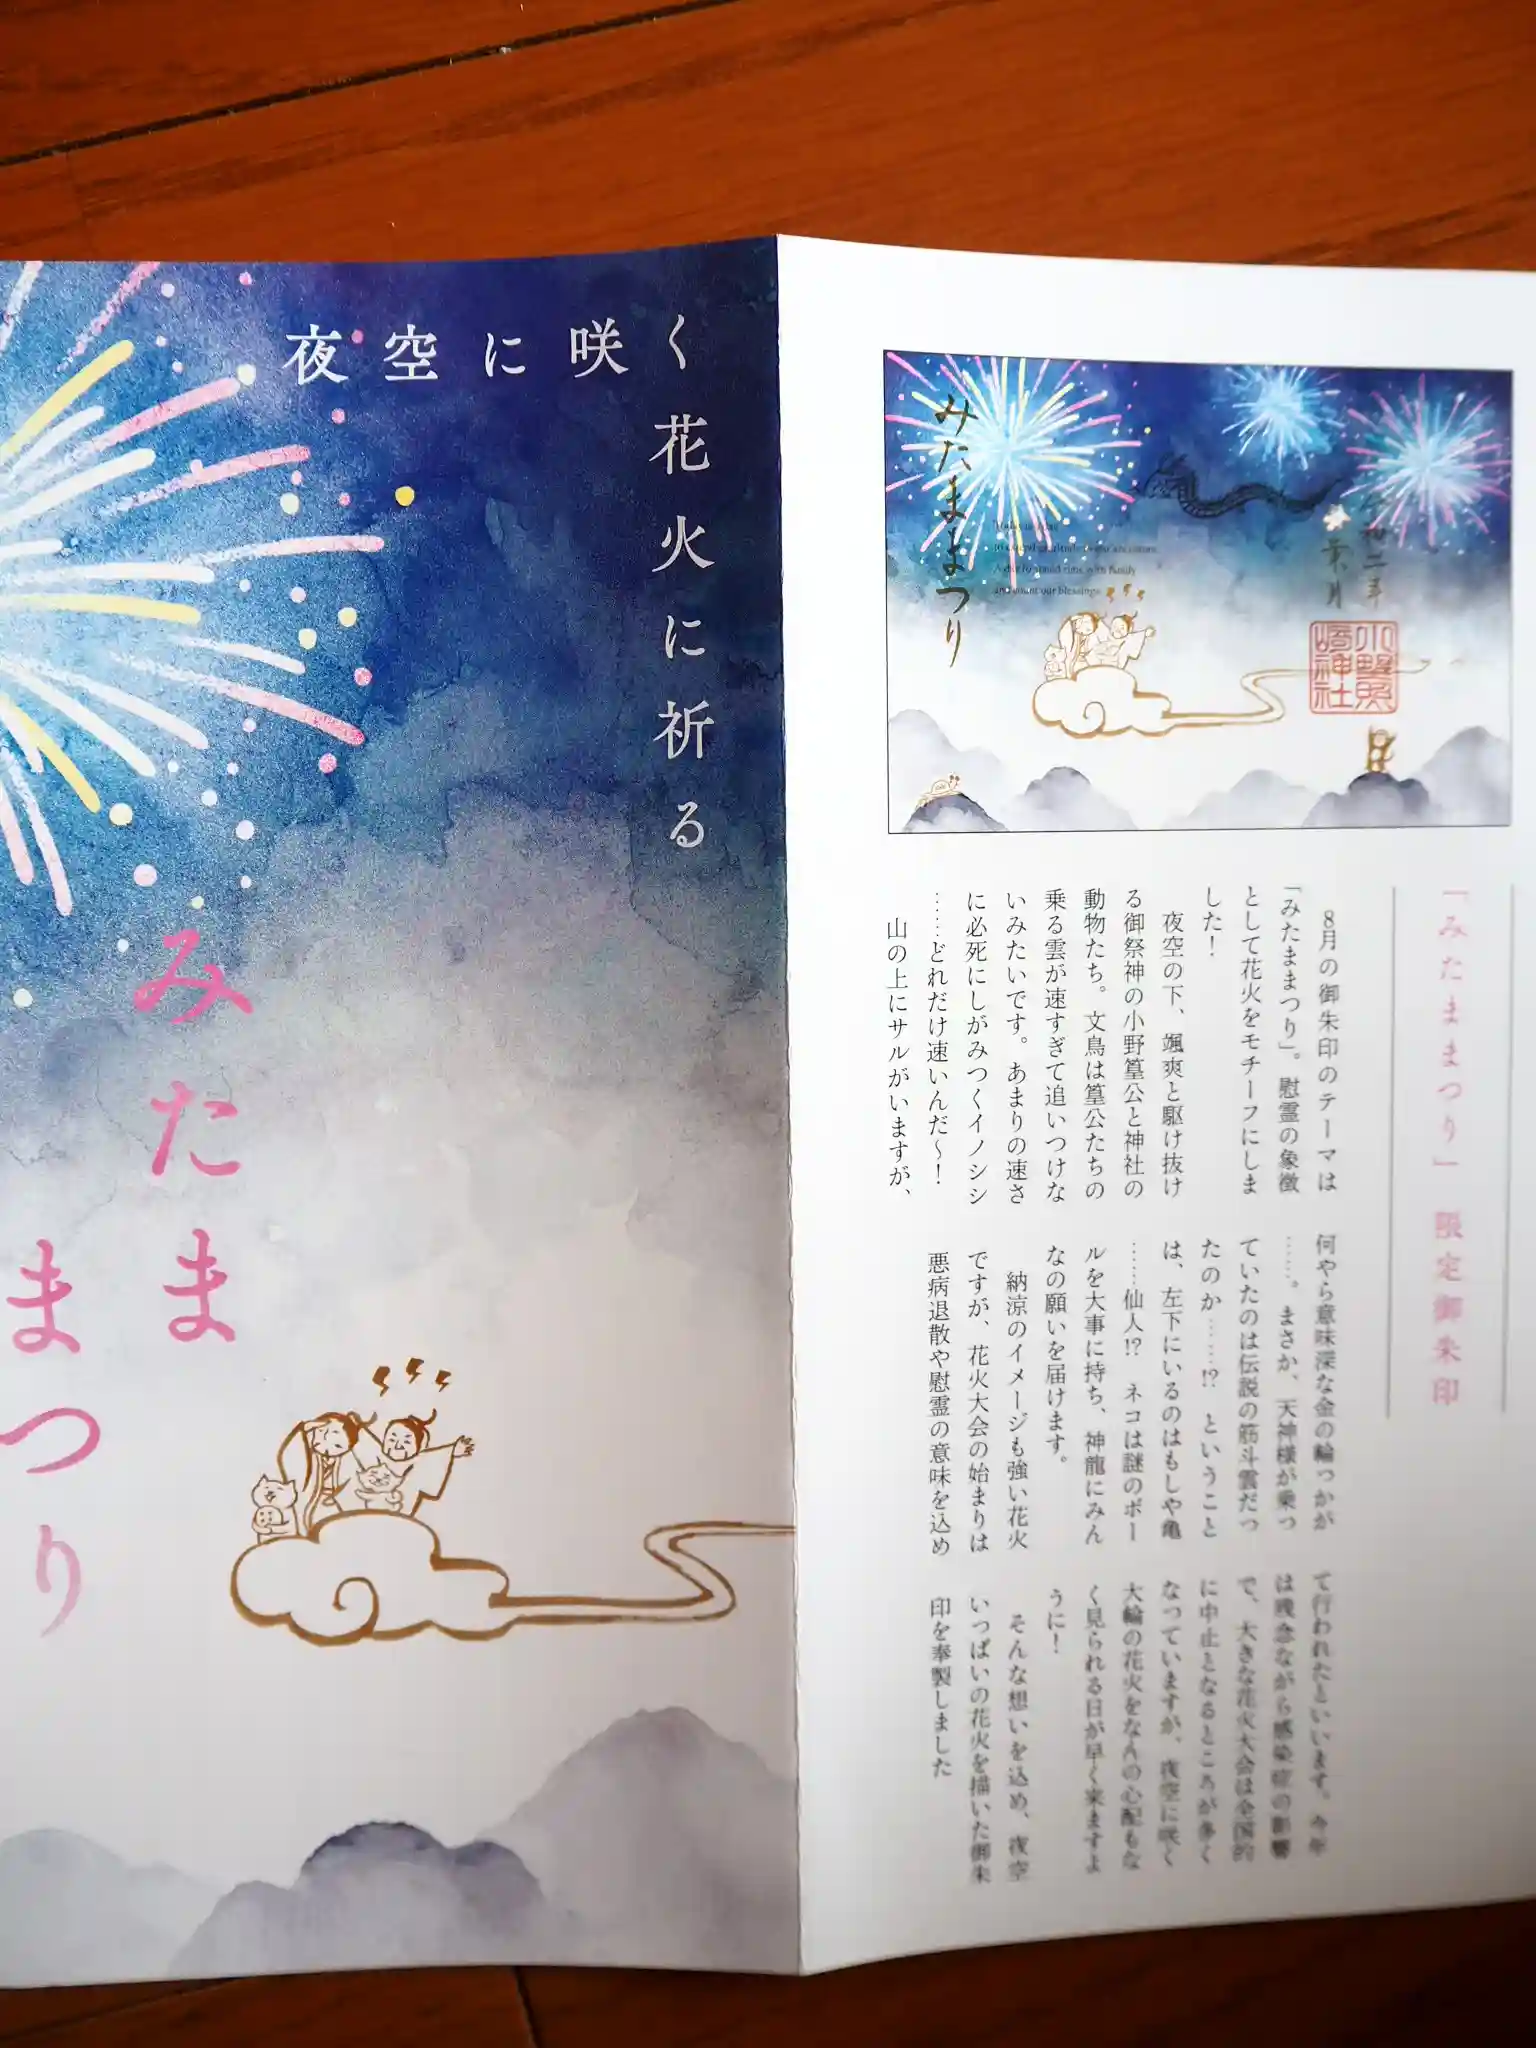 夜空に咲く花火に祈る
みたま
まつり
みたままつり
令和二年
葉月
小野照
崎神社
and count our blessings.
「みたままつり」限定御朱印
8月の御朱印のテーマは
「みたままつり」。慰霊の象徴
として花火をモチーフにしま
した！
夜空の下、颯爽と駆け抜け
る御祭神の小野篁公と神社の
動物たち。文鳥は篁公たちの
乗る雲が速すぎて追いつけな
いみたいです。あまりの速さ
に必死にしがみつくイノシシ
……どれだけ速いんだ〜！
山の上にサルがいますが、
何やら意味深な金の輪っかが
……。まさか、天神様が乗っ
ていたのは伝説の筋斗雲だっ
たのか……!?　ということ
は、左下にいるのはもしや亀
……仙人!?　ネコは謎のボー
ルを大事に持ち、神龍にみん
なの願いを届けます。
納涼のイメージも強い花火
ですが、花火大会の始まりは
悪病退散や慰霊の意味を込め
て行われたといいます。今年
は残念ながら感染症の影響
で、大きな花火大会は全国的
に中止となるところが多く
なっていますが、夜空に咲く
大輪の花火をなんの心配もな
く見られる日が早く来ますよ
うに！
そんな想いを込め、夜空
いっぱいの花火を描いた御朱
印を奉製しました